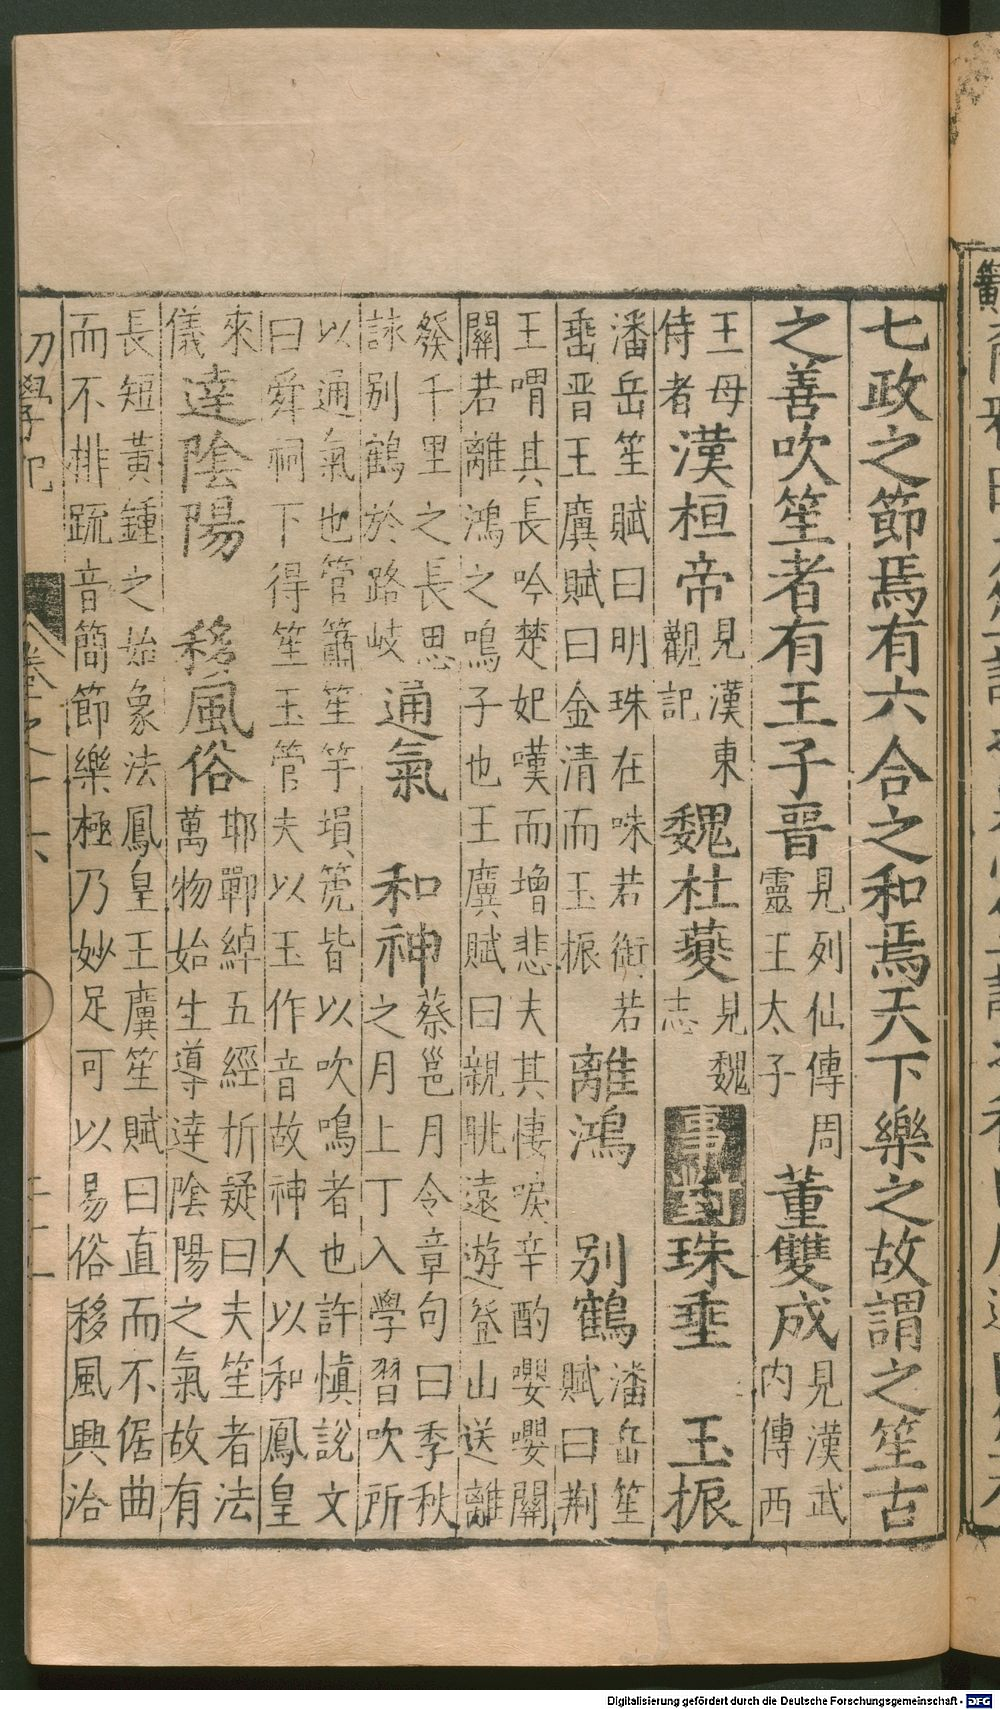 七政之節焉有六合之和焉天下樂之故謂之笙古
之善吹笙者有王子晉
見列仙傳周
靈王太子
董雙成
見漢武
内傳西
王母
侍者
漢桓帝
見漢東
觀記
魏杜夔
見魏
志
事對
珠垂　玉振
潘岳笙賦曰明珠在咮若銜若
垂晋王廙賦曰金清而玉振
離鴻　別鶴
潘岳笙
賦曰荆
王喟其長吟楚妃嘆而增悲夫其悽唳辛酌嚶嚶關
關若離鴻之鳴子也王廙賦曰親眺遠遊登山送離
發千里之長思
詠別鶴於路岐
通氣　和神
蔡邕月令章句曰季秋
之月上丁入學習吹所
以通氣也管簫笙竽塤箎皆以吹鳴者也許慎說文
曰舜祠下得笙玉管夫以玉作音故神人以和鳳皇
來
儀
達陰陽　移風俗
耶鄲綽五經折疑曰夫笙者法
萬物始生導達陰陽之氣故有
長短黃鍾之始象法鳳皇王廙笙賦曰直而不倨曲
而不排疏音簡節樂極乃妙足可以易俗移風興洽
初學記 卷之十六
Digitalisierung gefördert durch die Deutsche Forschungsgemeinschaft - DFG